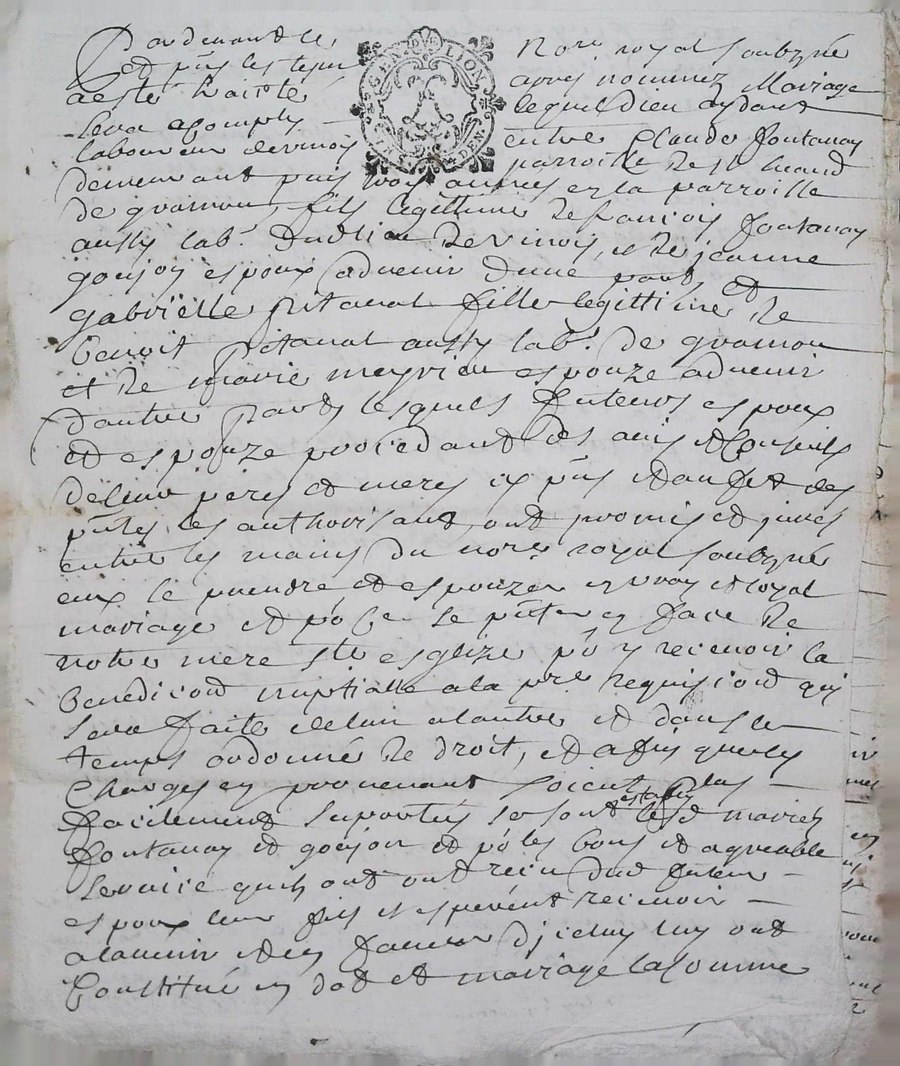 Pardevant le Nore royal soubzné
et puis les tesm apres nommez Mariage
a esté traicté lequel Dieu aydant
sera acomply entre Claude fontanay
laboureur devinoy parroisse de st
demeurant puis trois années en la parroisse
de gramon, fils legittime de francois fontanay
aussy lab.r dudlieu de vinois, et de jeanne
goujon espoux advenir d'une part, et
gabrielle pitaval fille legittime de
Benoit pitaval aussy lab.r de gramon
et de marie meyrieu espouze advenir
d'autre part lesquels futeurs espoux
et espouze procedant des avis et Conseils
de leur peres et meres cy pnts et
pntes les authorisant, ont promis et jurés
entre les mains du nore royal soubzné
eux se prendre et espouzer en vray et loyal
mariage et po' ce se pnter en face de
notre mere ste esglize po' y recevoir la
Benediciond nuptialle a la pre requisiond qui
sera faite de l'un a l'autre et dans le
temps ordonné de droit, et afin que les
charges en provenant soient plus
facilement suportés se sont establis lesd mariez
fontanay et goujon et po' les bons et agreable
service quils ont ont receu dud futeur
espoux leur fils et esperent recevoir
a l'advenir et en faveur d'jceluy luy ont
Constitué en dot et mariage la somme
GEN DE LION
DEN